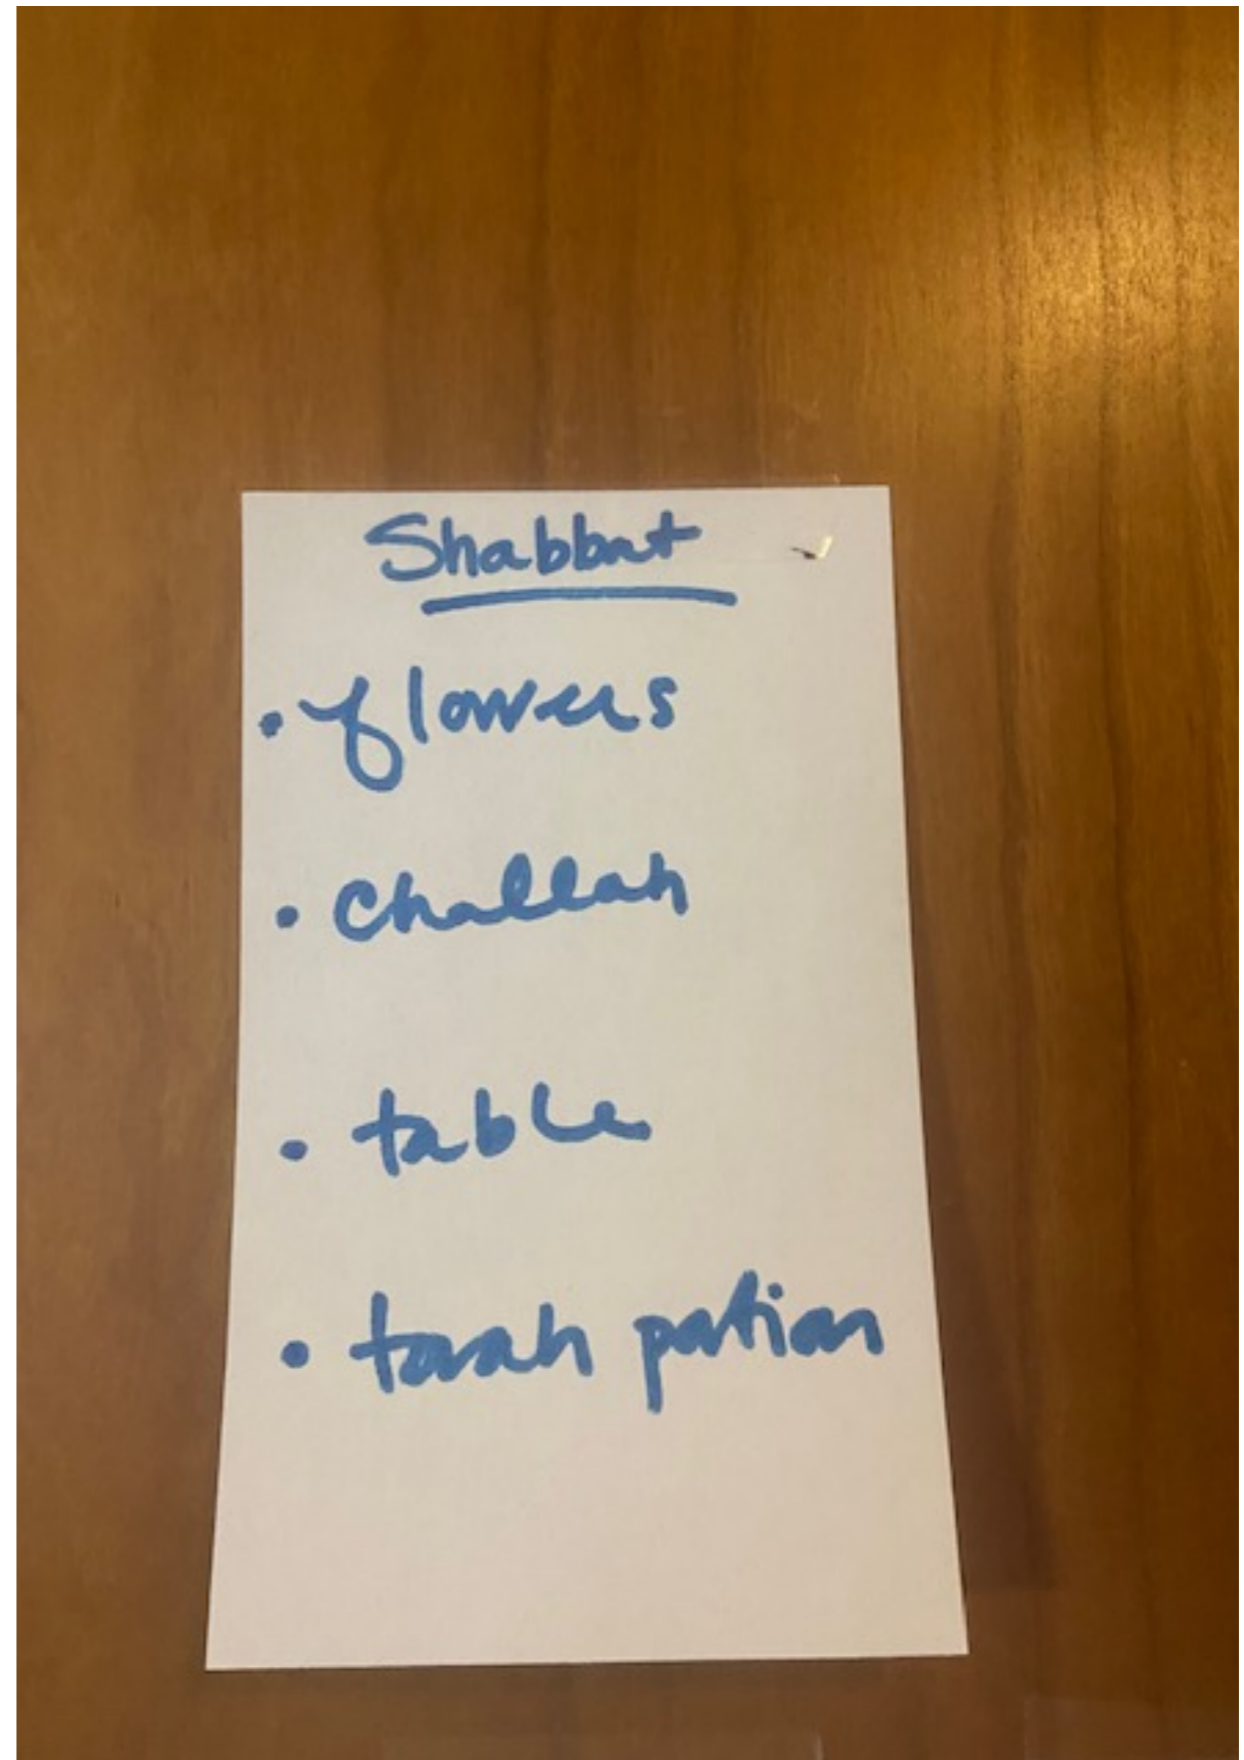 Shabbat
• flowers
• challah
• table
• torah portion